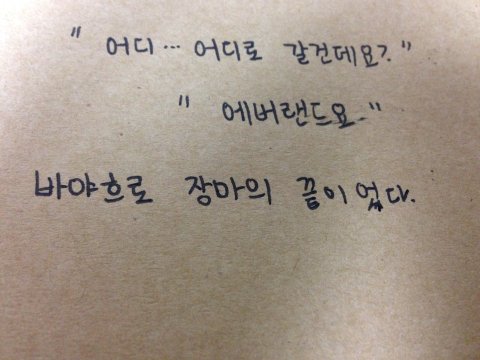 " 어디… 어디로 갈건데요? "
" 에버랜드요. "
바야흐로 장마의 끝이었다.